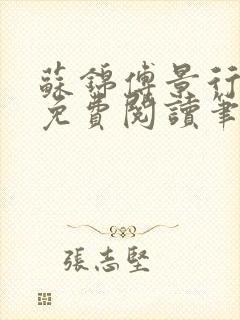 蘇錦傅景行
免費閱讀筆
張志堅